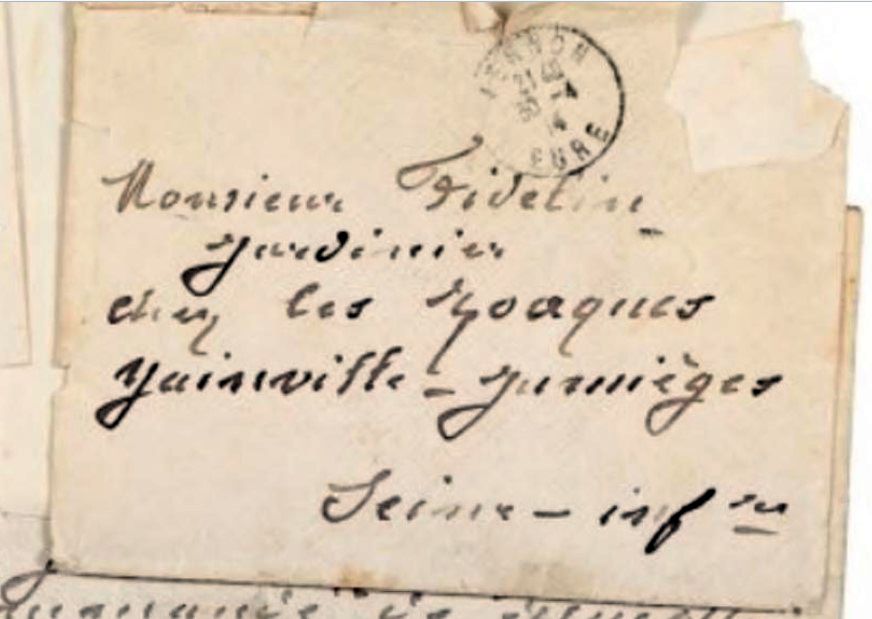 VERNON
EURE
Monsieur Fidelin
Jardinier
chez les Zoaques
Yainville – Jumièges
Seine – infre